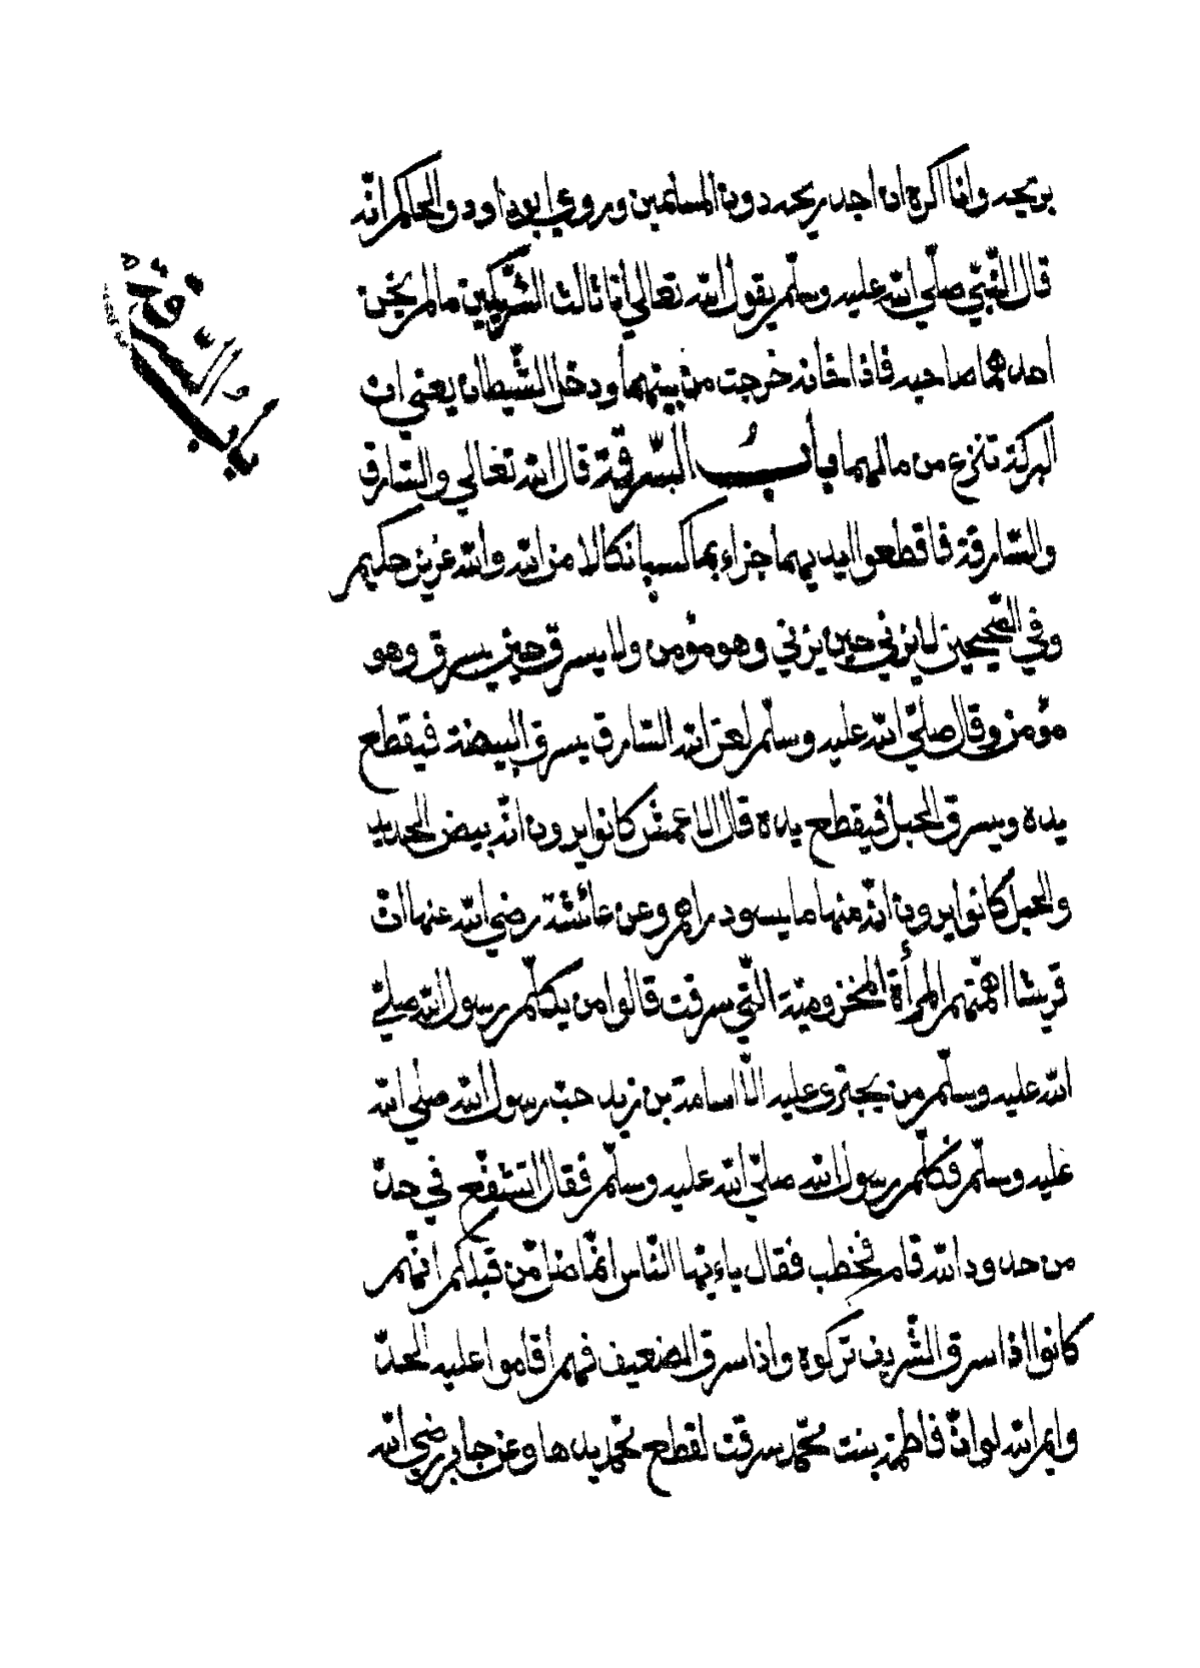 بريحه وانا اكره ان اجد ريحه دون المسلمين وروي ابوداود والحاكم انّه
قال النّبيّ صلّي الله عليه وسلّم يقول الله تعالي أنا ثالث الشّريكين مالم يخن
احدهما صاحبه فاذا خانه خرجت من بينهما ودخل الشّيطان يعني ان
البركة تنزع من مالهما باب السّرقة قال الله تعالي والسّارق
والسّارقة فاقطعوا ايديهما جزاء بما كسبا نكالا من الله والله عزيز حكيم
وفي الصّحيحين لا يزني حين يزني وهو مؤمن ولا يسرق حين يسرق وهو
مؤمن وقال صلّي الله عليه وسلّم لعن الله السّارق يسرق البيضة فيقطع
يده ويسرق الحبل فيقطع يده قال الاعمش كانوا يرون انّه بيض الحديد
والحبل كانوا يرون انّه منها ما يسو دراهم وعن عائشة رضي الله عنها انّ
قريشا اهمّتهم المرأة المخزوميّة الّتي سرقت قالوا من يكلّم رسول الله صلّي
الله عليه وسلّم من يجتري عليه الّا اسامة بن زيد حبّ رسول الله صلّي الله
عليه وسلّم فكلّم رسول الله صلّي الله عليه وسلّم فقال اتشفّع في حدّ
من حدود الله قام فخطب فقال ياءيّها النّاس انّما ضلّ من قبلكم انّهم
كانوا اذا سرق الشّريف تركوه واذا سرق الضعيف فيهم أقاموا عليه الحدّ
وايم الله لو انّ فاطمة بنت محمّد سرقت لقطع محمّد يدها وعن جابر رضي الله
باب السّرقة